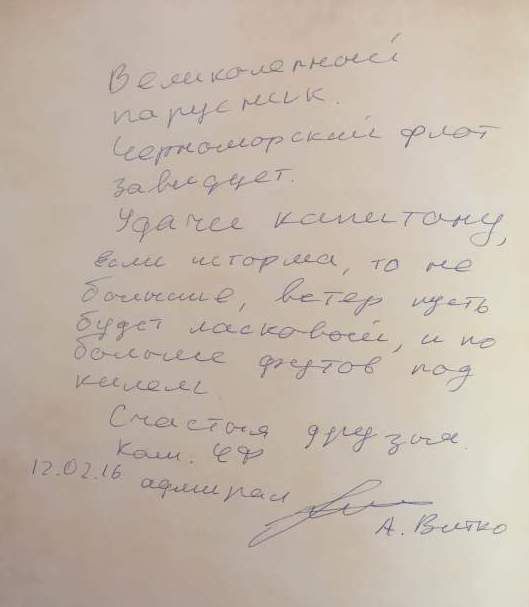 Великолепный
парусник.
Черноморский флот
завидует.
Удачи капитану,
если шторма, то не
большие, ветер пусть
будет ласковый, и по
больше футов под
килем
Счастья друзья.
Ком. ЧФ
12.02.16 адмирал
А. Витко